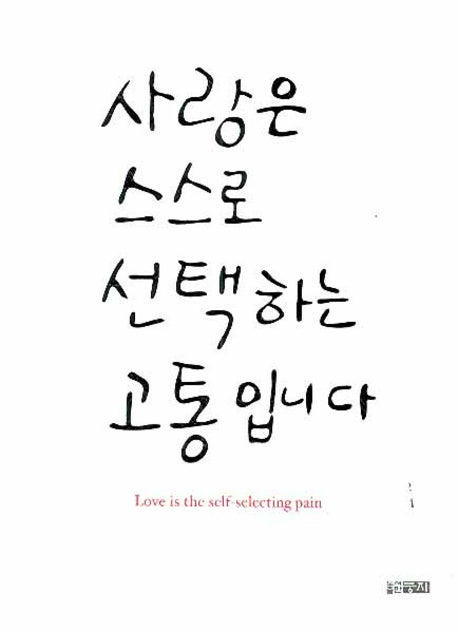 사랑은
스스로
선택하는
고통입니다
Love is the self-selecting pain